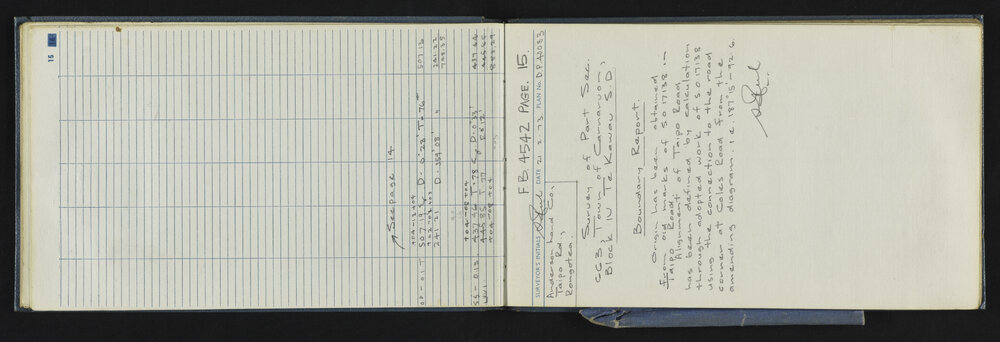 15
See page 14
0.0 - 0.1 T 507.19 D. 0.28' T.76
507.13
902-903 203
241.21 D. 359°08'
241.22
904-08 404
437.46 T.78 D.0.33'
437.44
445.85 T.77
445.65
904-08 404
883.29
SS - 0.13
FB 4542 PAGE. 15.
SURVEYOR'S INITIALS DATE 21. 2. 73. PLAN No. D.P. 40033
Anderson Land Co.,
Taipo Rd.,
Rongotea.
Survey of Part Sec.
663 Town of Carnarvon
Block IV Te Kawau S.D.
Boundary Report.
Origin has been obtained
from old marks of S.O. 17138 in
Taipo Road.
Alignment of Taipo Road
has been defined by calculation
through adopted work of S.O 17138
using the connection to the road
corner at Coles Road from the
amending diagram. i.e. 187°15' - 92.6.